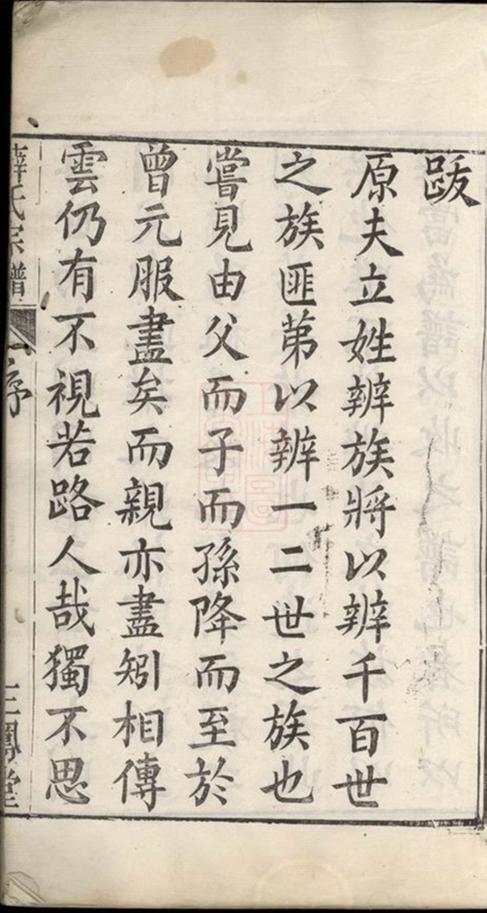 跋
原夫立姓辨族將以辨千百世
之族匪第以辨一二世之族也
嘗見由父而子而孫降而至於
曾元服盡矣而親亦盡矧相傳
雲仍有不視若路人哉獨不思
薛氏宗譜
序
三鳳堂